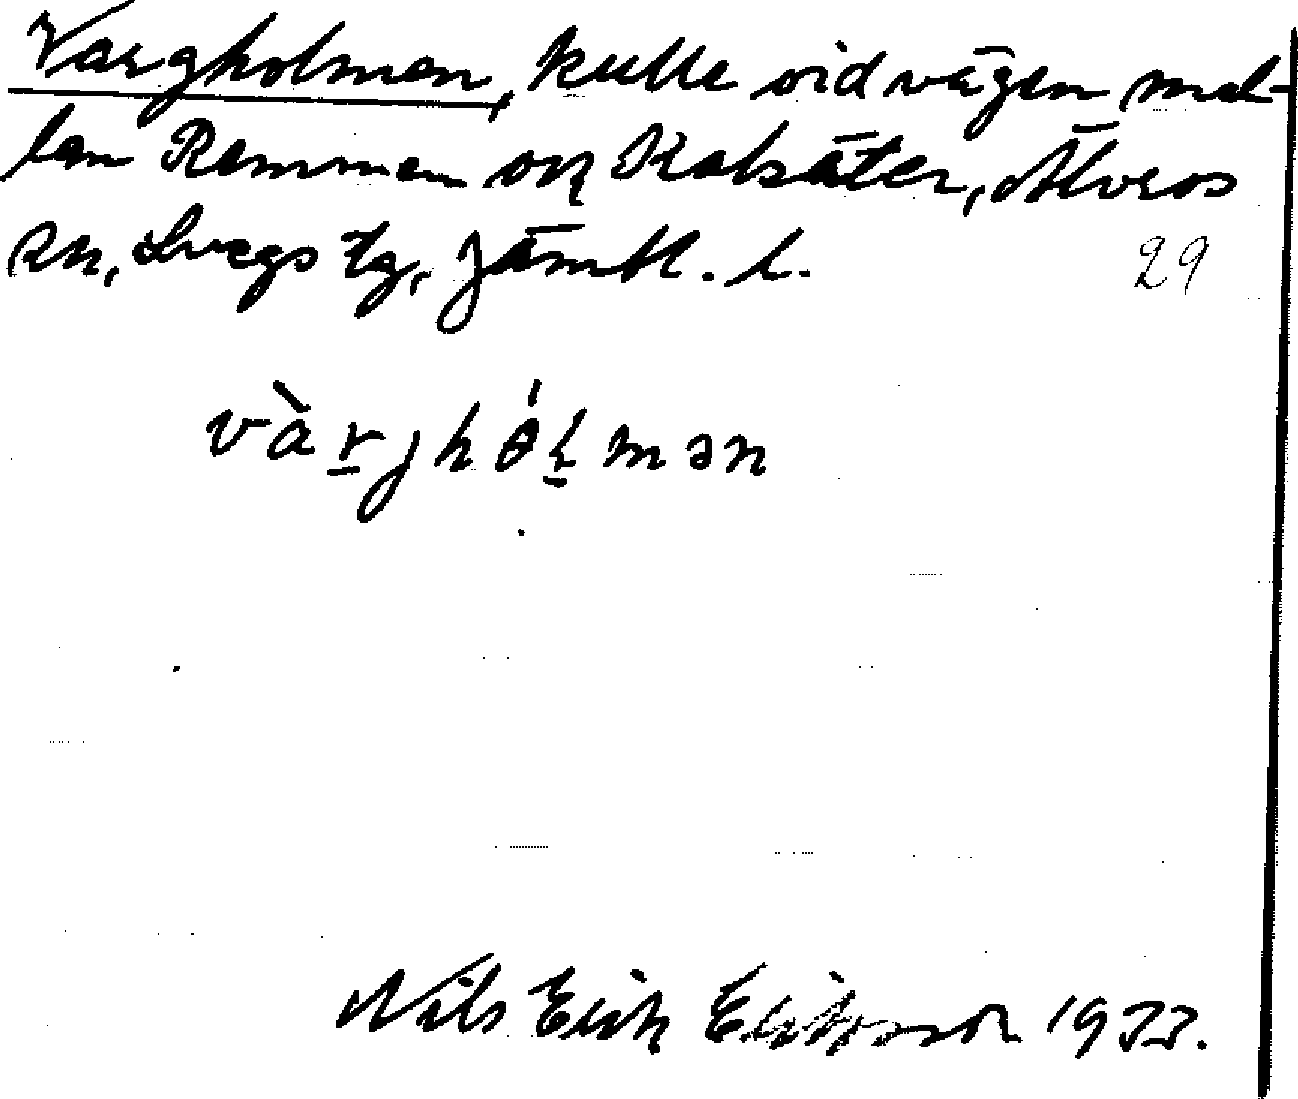 Vargholmen, kulle vid vägen mel-
lan Remmen och Kolsätter, Älvros
sn, Svegs tg, Jämtl. l.
29
vàrjhólmən
Nils Erik Eriksson 1933.